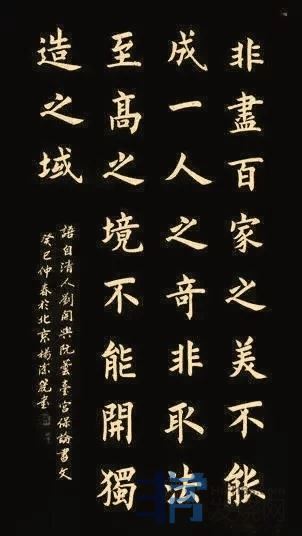 非盡百家之美不能
成一人之奇非取法
至髙之境不能開獨
造之域
語自清人劉開與阮芸臺宮保論書文
癸巳仲春於北京楊